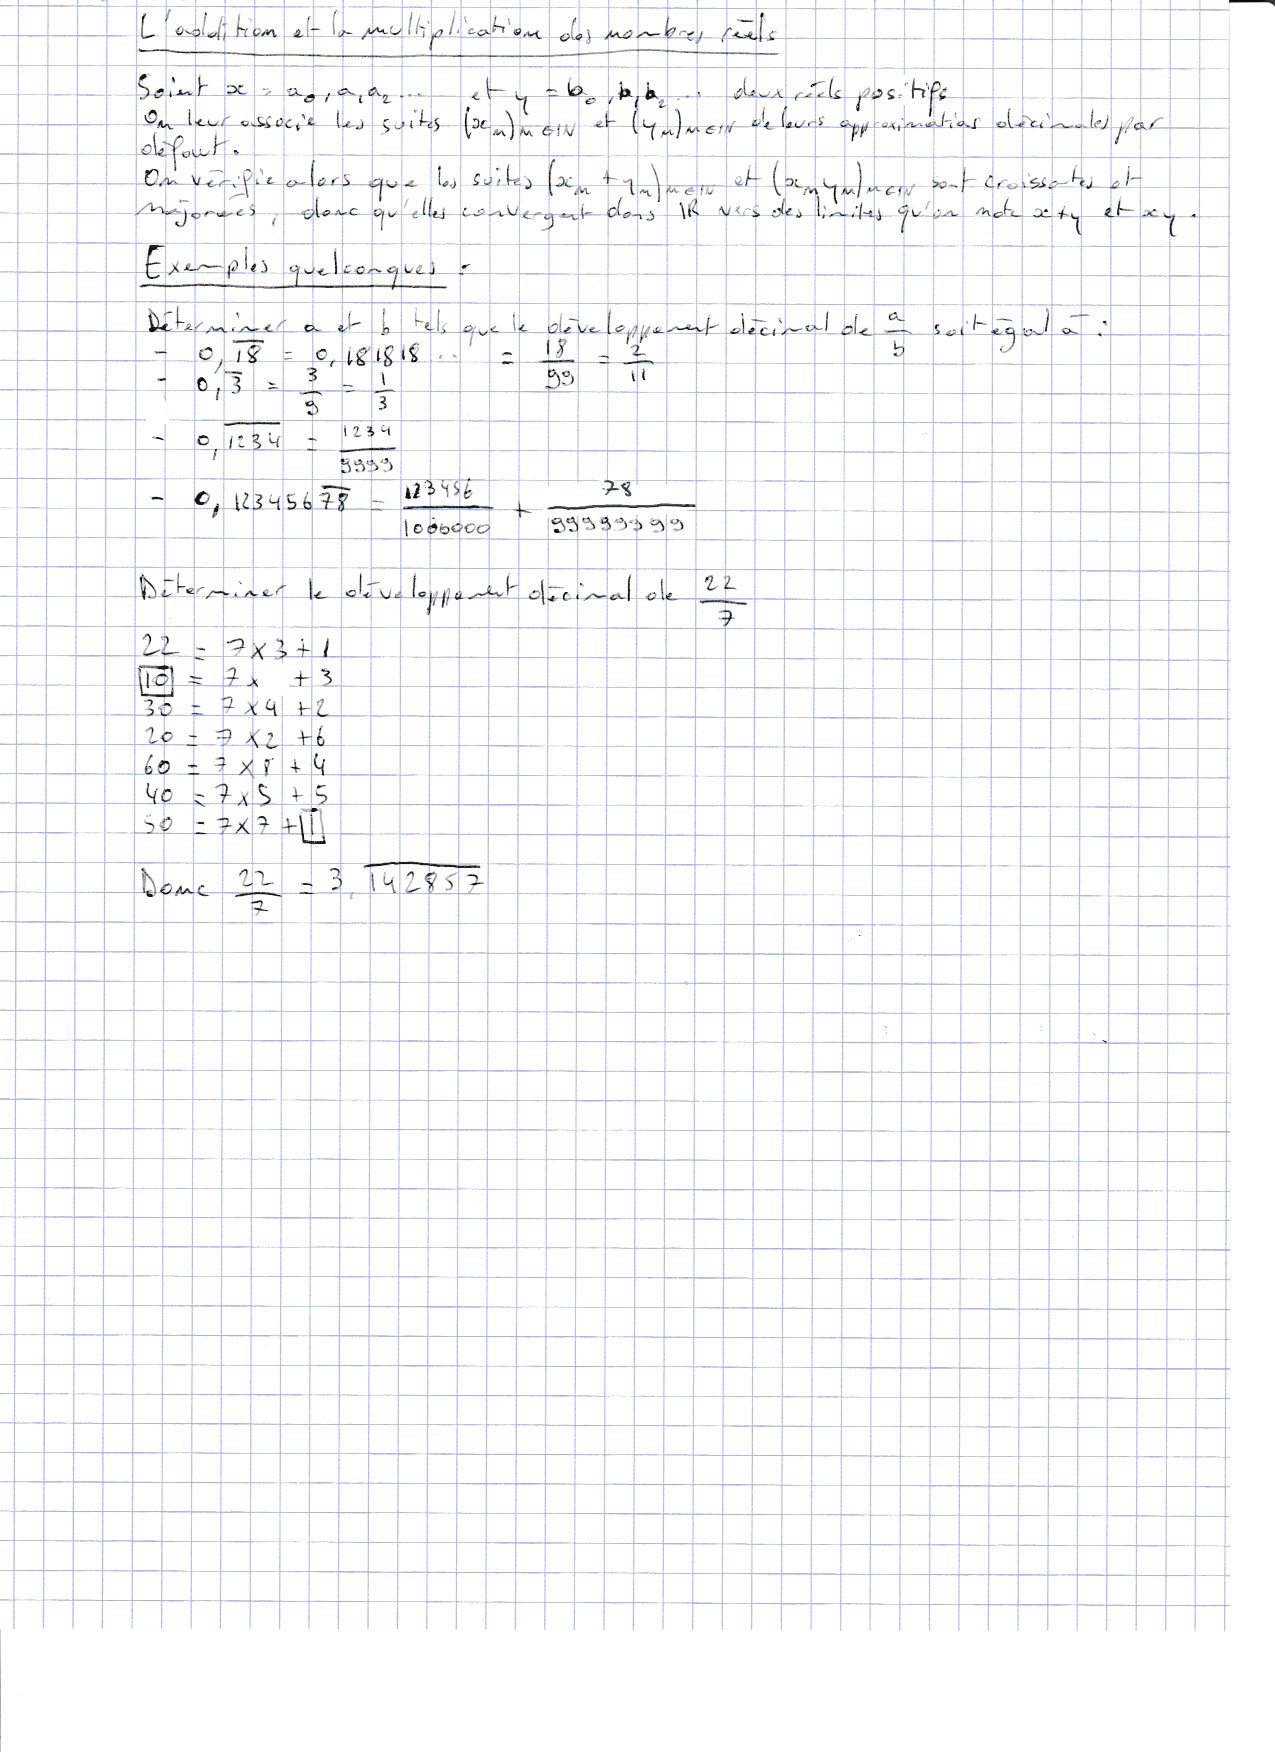 L'addition et la multiplication des nombres réels
Soient x = a₀,a₁a₂... et y = b₀,b₁b₂... deux réels positifs
On leur associe les suites (xₙ)ₙ∈ℕ et (yₙ)ₙ∈ℕ de leurs approximatias décimales par
défaut.
On vérifie alors que les suites (xₙ + yₙ)ₙ∈ℕ et (xₙyₙ)ₙ∈ℕ sont croissantes et
majorées, donc qu'elles convergent dans ℝ vers des limites qu'on note x+y et xy.
Exemples quelconques :
Déterminer a et b tels que le développement décimal de a/b soit égal à :
- 0,1̅8̅ = 0,181818... = 18/99 = 2/11
- 0,3̅ = 3/9 = 1/3
- 0,1̅2̅3̅4̅ = 1234/9999
- 0,1234567̅8̅ = 123456/1000000 + 78/99999999
Déterminer le développement décimal de 22/7
22 = 7×3+1
10 = 7× +3
30 = 7×4+2
20 = 7×2+6
60 = 7×8+4
40 = 7×5+5
50 = 7×7+1
Donc 22/7 = 3,1̅4̅2̅8̅5̅7̅